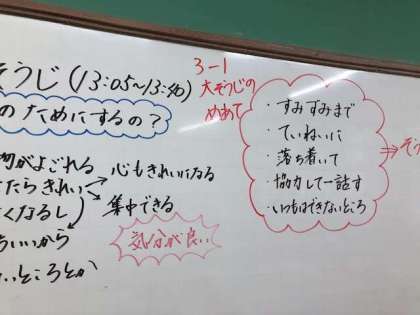 そうじ (13:05~13:40)
のためにするの?
がよごれる
たらきれい
くなるし
ちいいから
いところとか
心もきれいになる
集中できる
気分が良い
3-1
大そうじの
めあて
・すみずみまで
・ていねいに
・落ち着いて
・協力して一話す
・いつもはできないところ
⇒そう